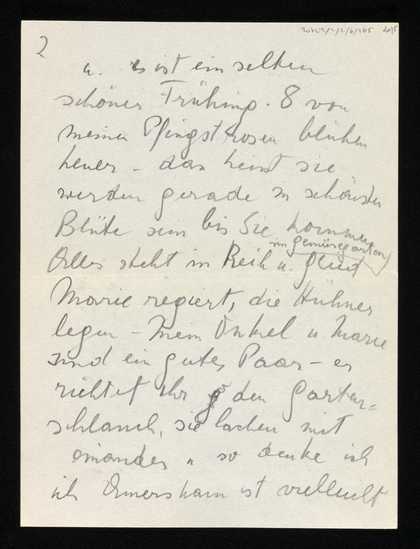 2
u. es ist ein selten
schöner Frühling. 8 von
meinen Pfingstrosen blühen
heuer – das heisst sie
werden gerade in schönster
Blüte sein bis Sie kommen
im Gemüsegarten
Alles steht in Reih u. Glied
Marie regiert, die Hühner
legen – Mein Onkel u Marie
sind ein gutes Paar – er
richtet ihr den Garten=
schlauch, sie lachen mit
einander u so denke ich
ich Amersham ist vielleicht